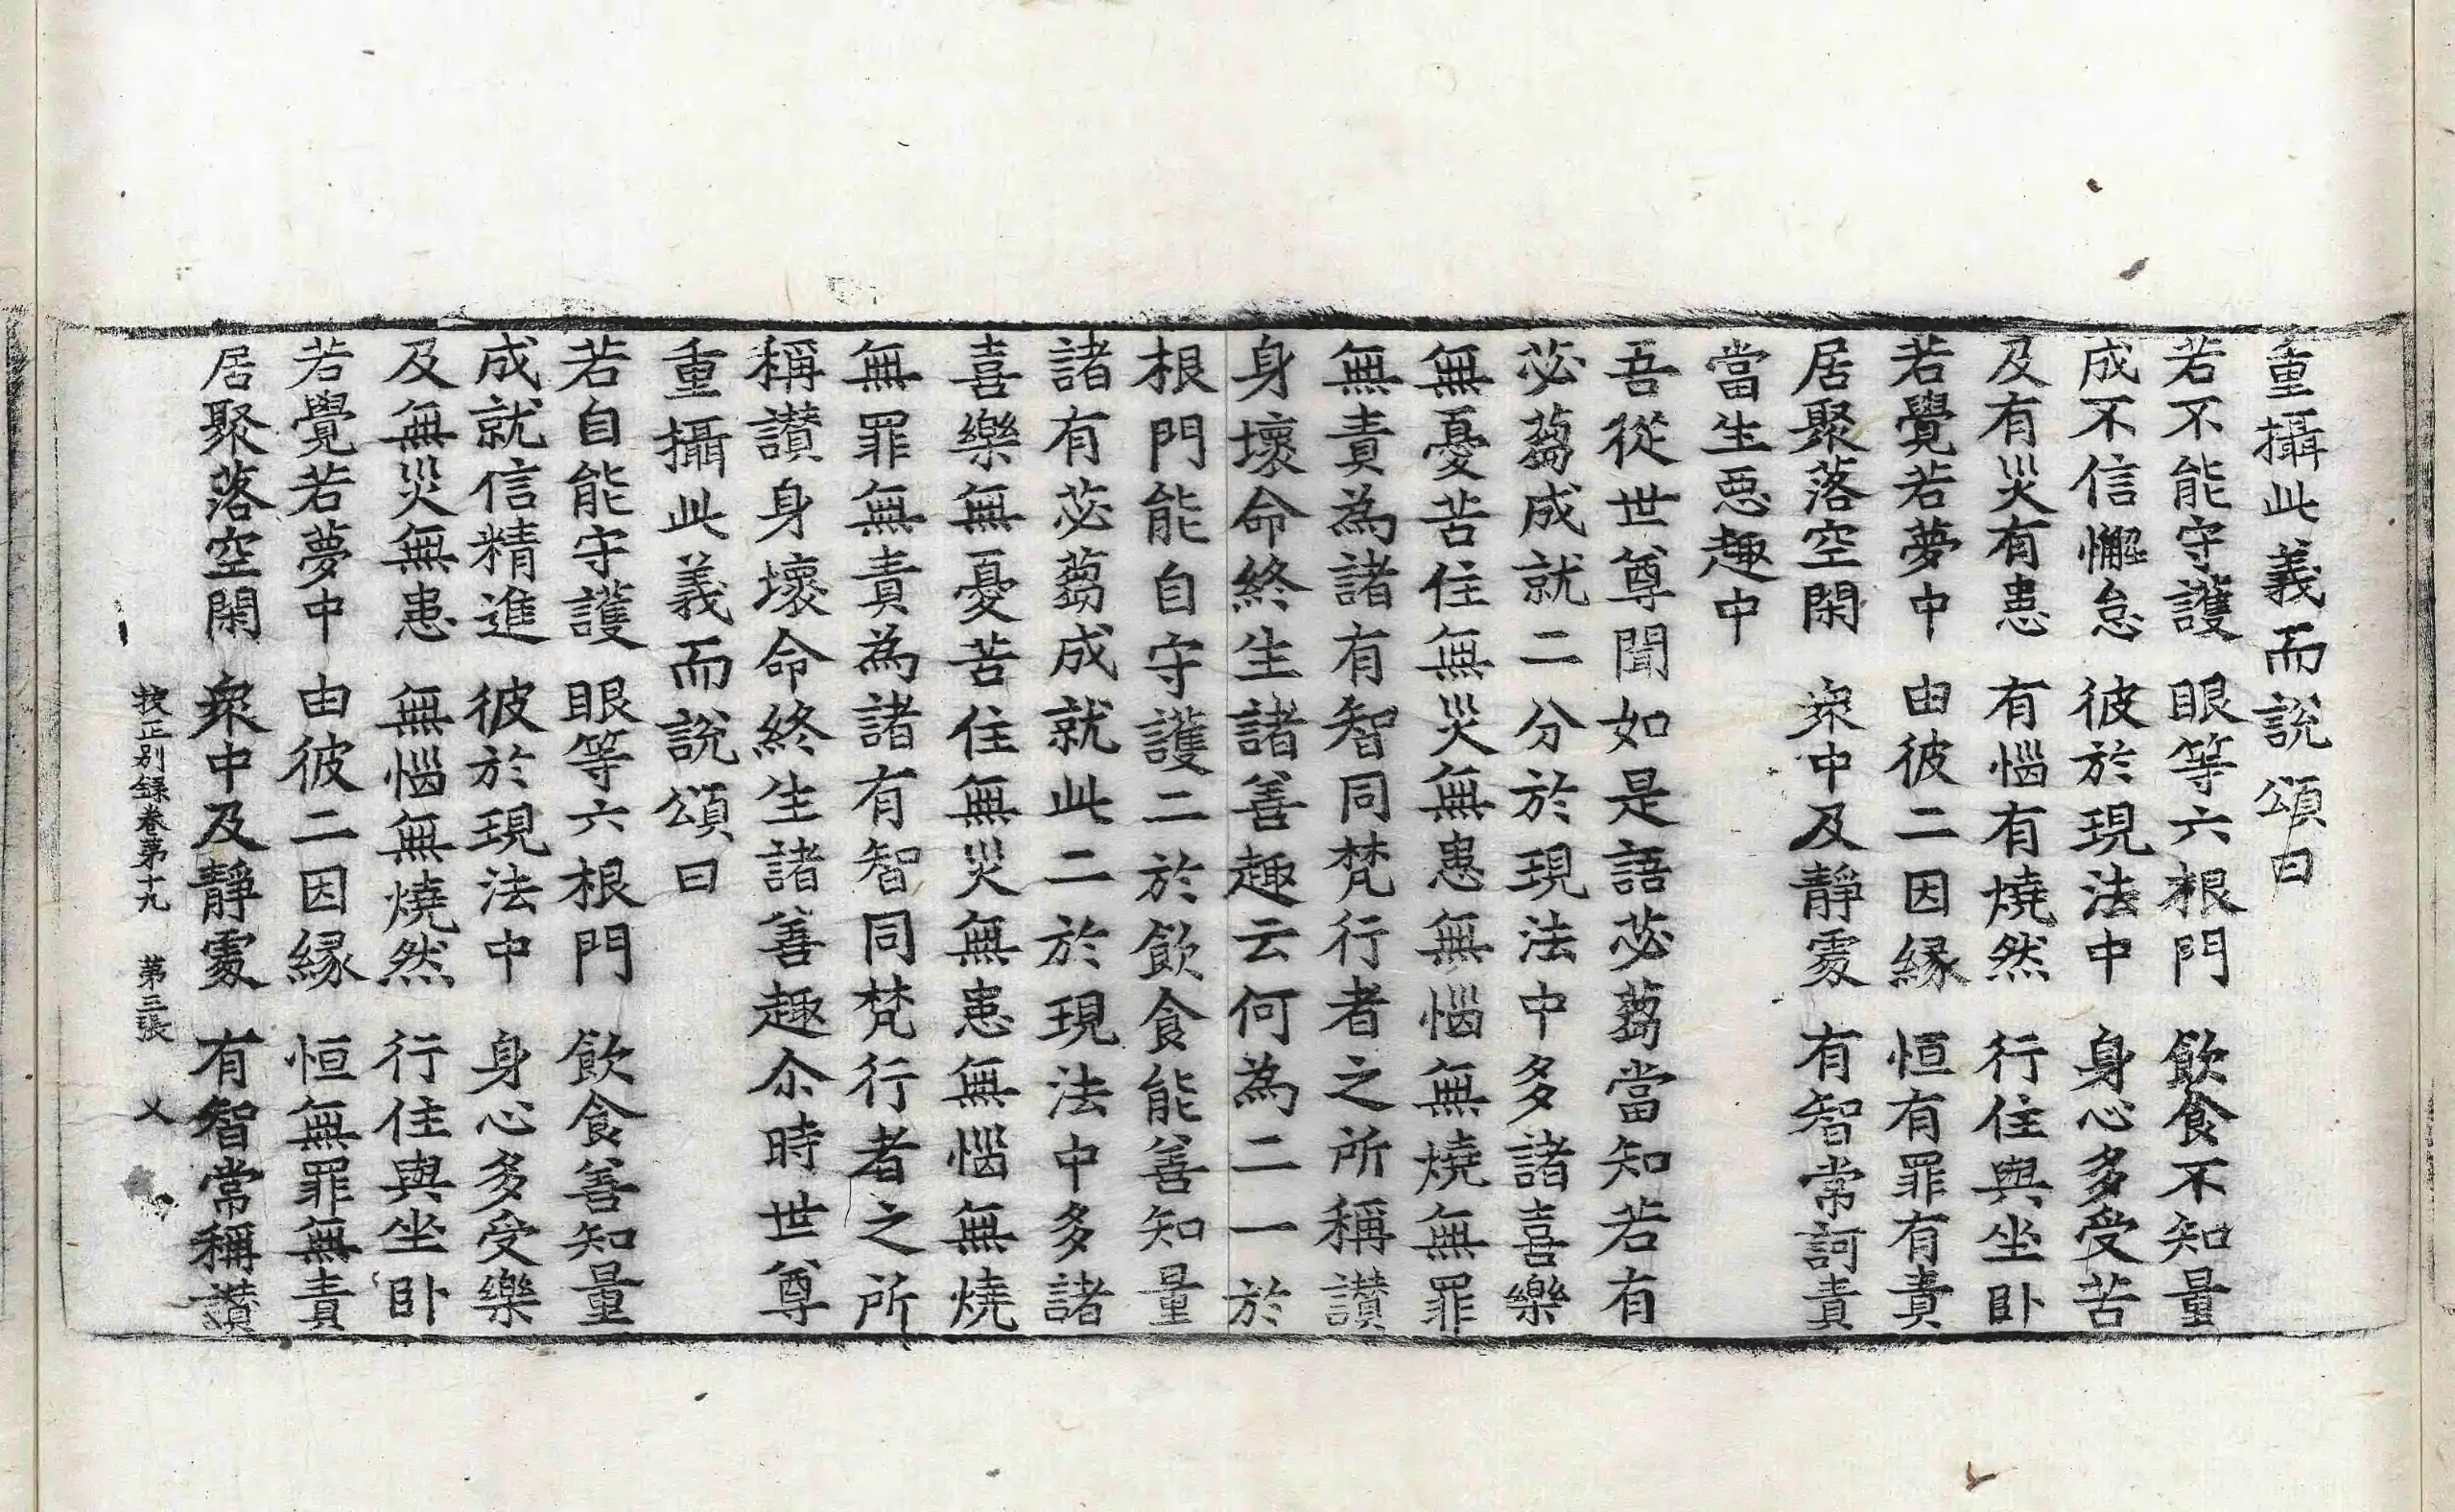 重攝此義而說頌曰
若不能守護 眼等六根門 飲食不知量
成不信懈怠 彼於現法中 身心多受苦
及有災有患 有惱有燒然 行住與坐卧
若覺若夢中 由彼二因緣 恒有罪有責
居聚落空閑 衆中及靜處 有智常訶責
當生惡趣中
吾從世尊聞如是語苾蒭當知若有
苾蒭成就二分於現法中多諸喜樂
無憂苦住無災無患無惱無燒無罪
無責為諸有智同梵行者之所稱讚
身壞命終生諸善趣云何為二一於
根門能自守護二於飲食能善知量
諸有苾蒭成就此二於現法中多諸
喜樂無憂苦住無災無患無惱無燒
無罪無責為諸有智同梵行者之所
稱讚身壞命終生諸善趣尒時世尊
重攝此義而說頌曰
若自能守護 眼等六根門 飲食善知量
成就信精進 彼於現法中 身心多受樂
及無災無患 無惱無燒然 行住與坐卧
若覺若夢中 由彼二因緣 恒無罪無責
居聚落空閑 衆中及靜處 有智常稱讚
挍正別錄卷第十九 第三張 乂